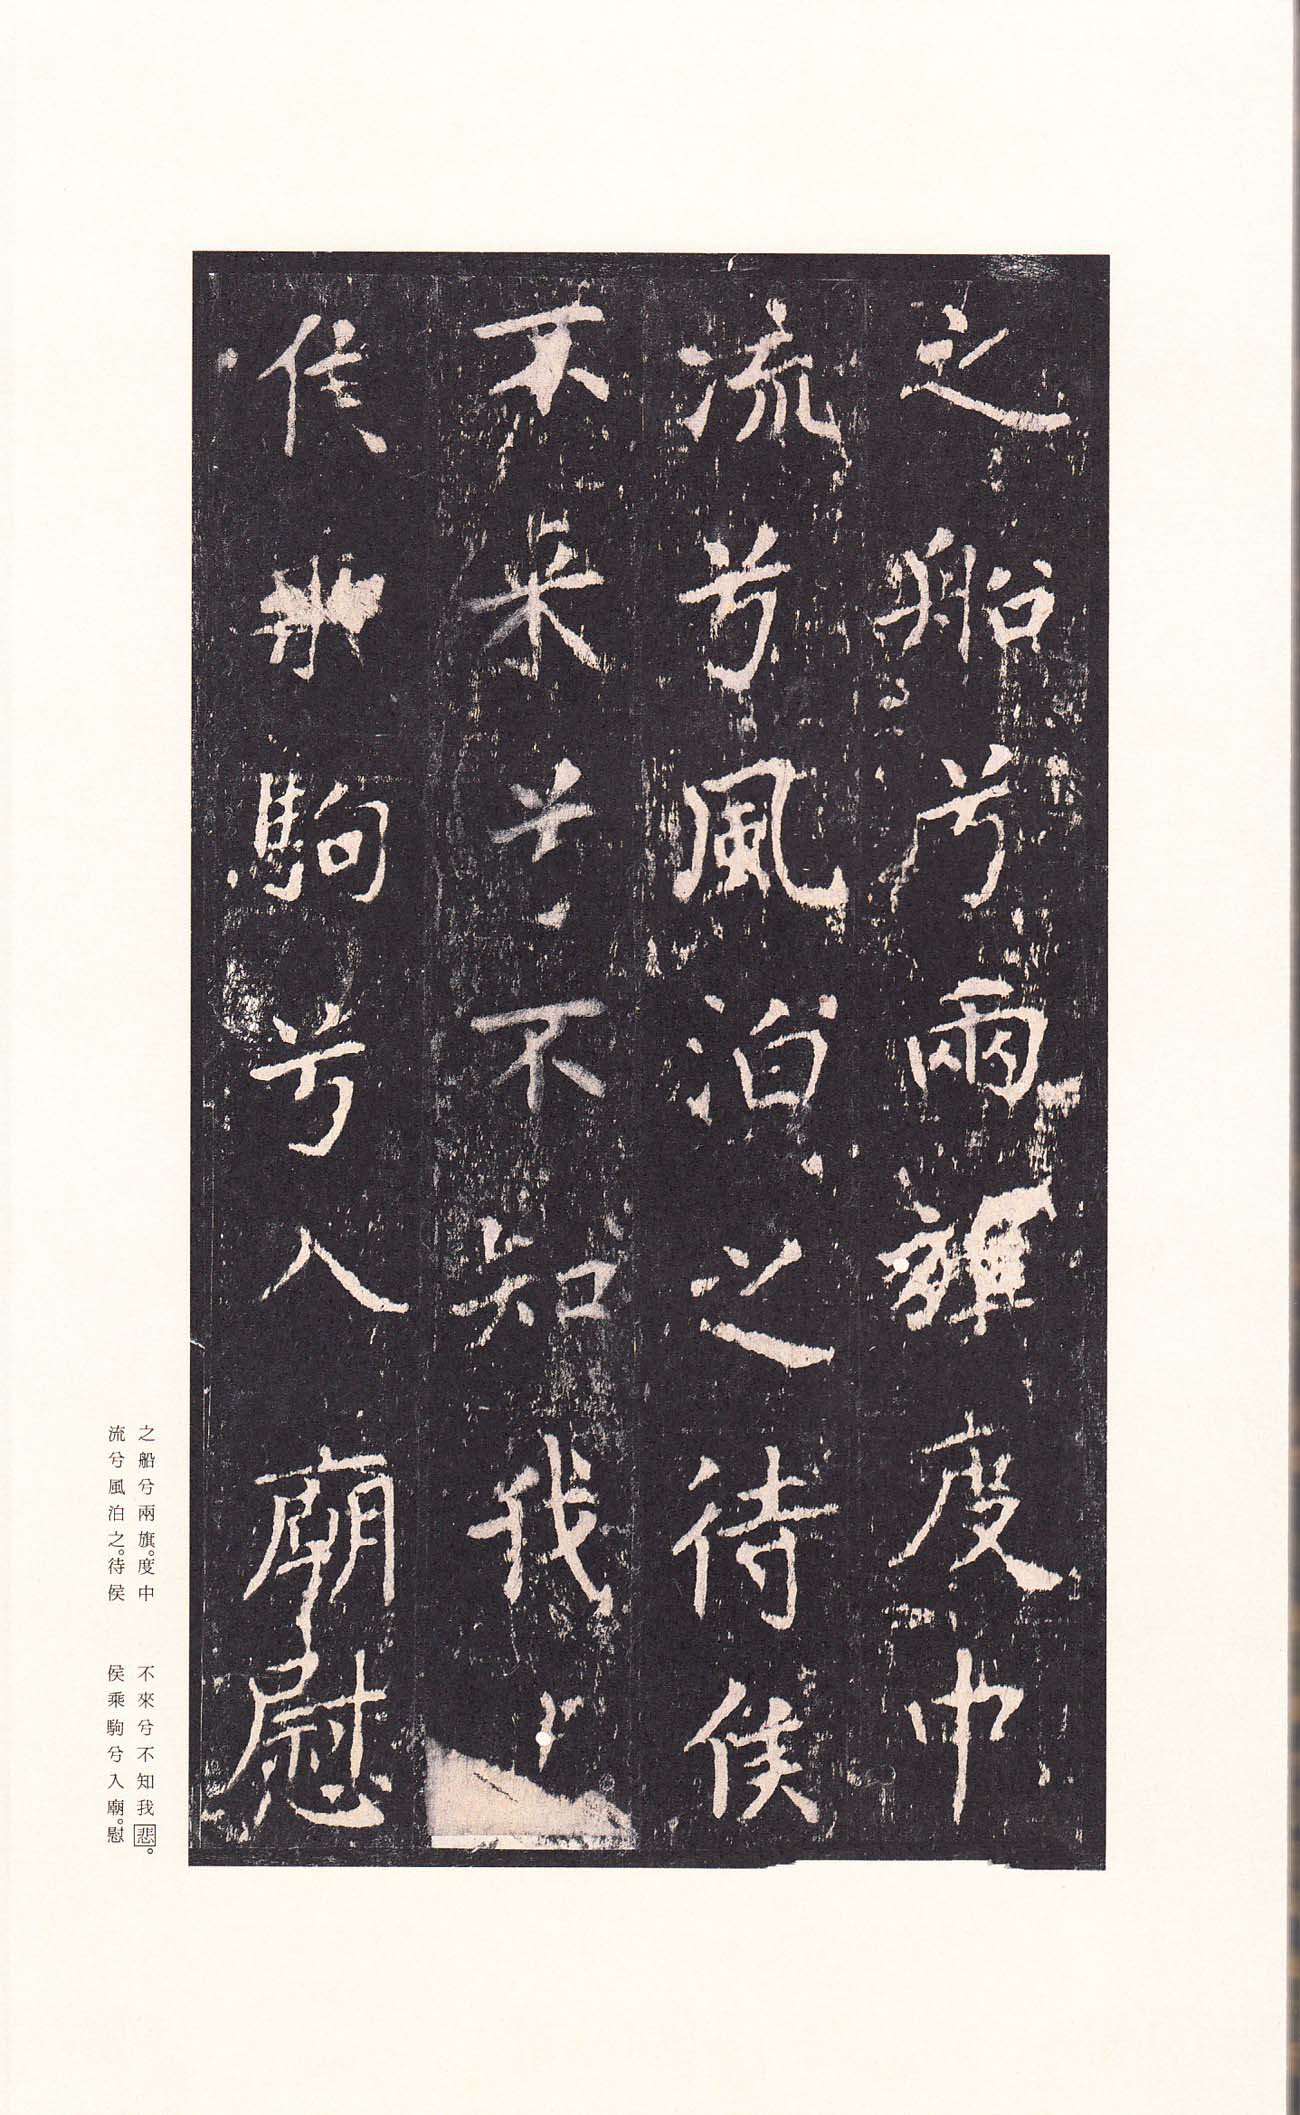 之船兮兩旗度中
流兮風泊之待侯
不來兮不知我
侯乘駒兮入廟慰
之船兮兩旗。度中
流兮風泊之。待侯
不來兮不知我悲。
侯乘駒兮入廟。慰